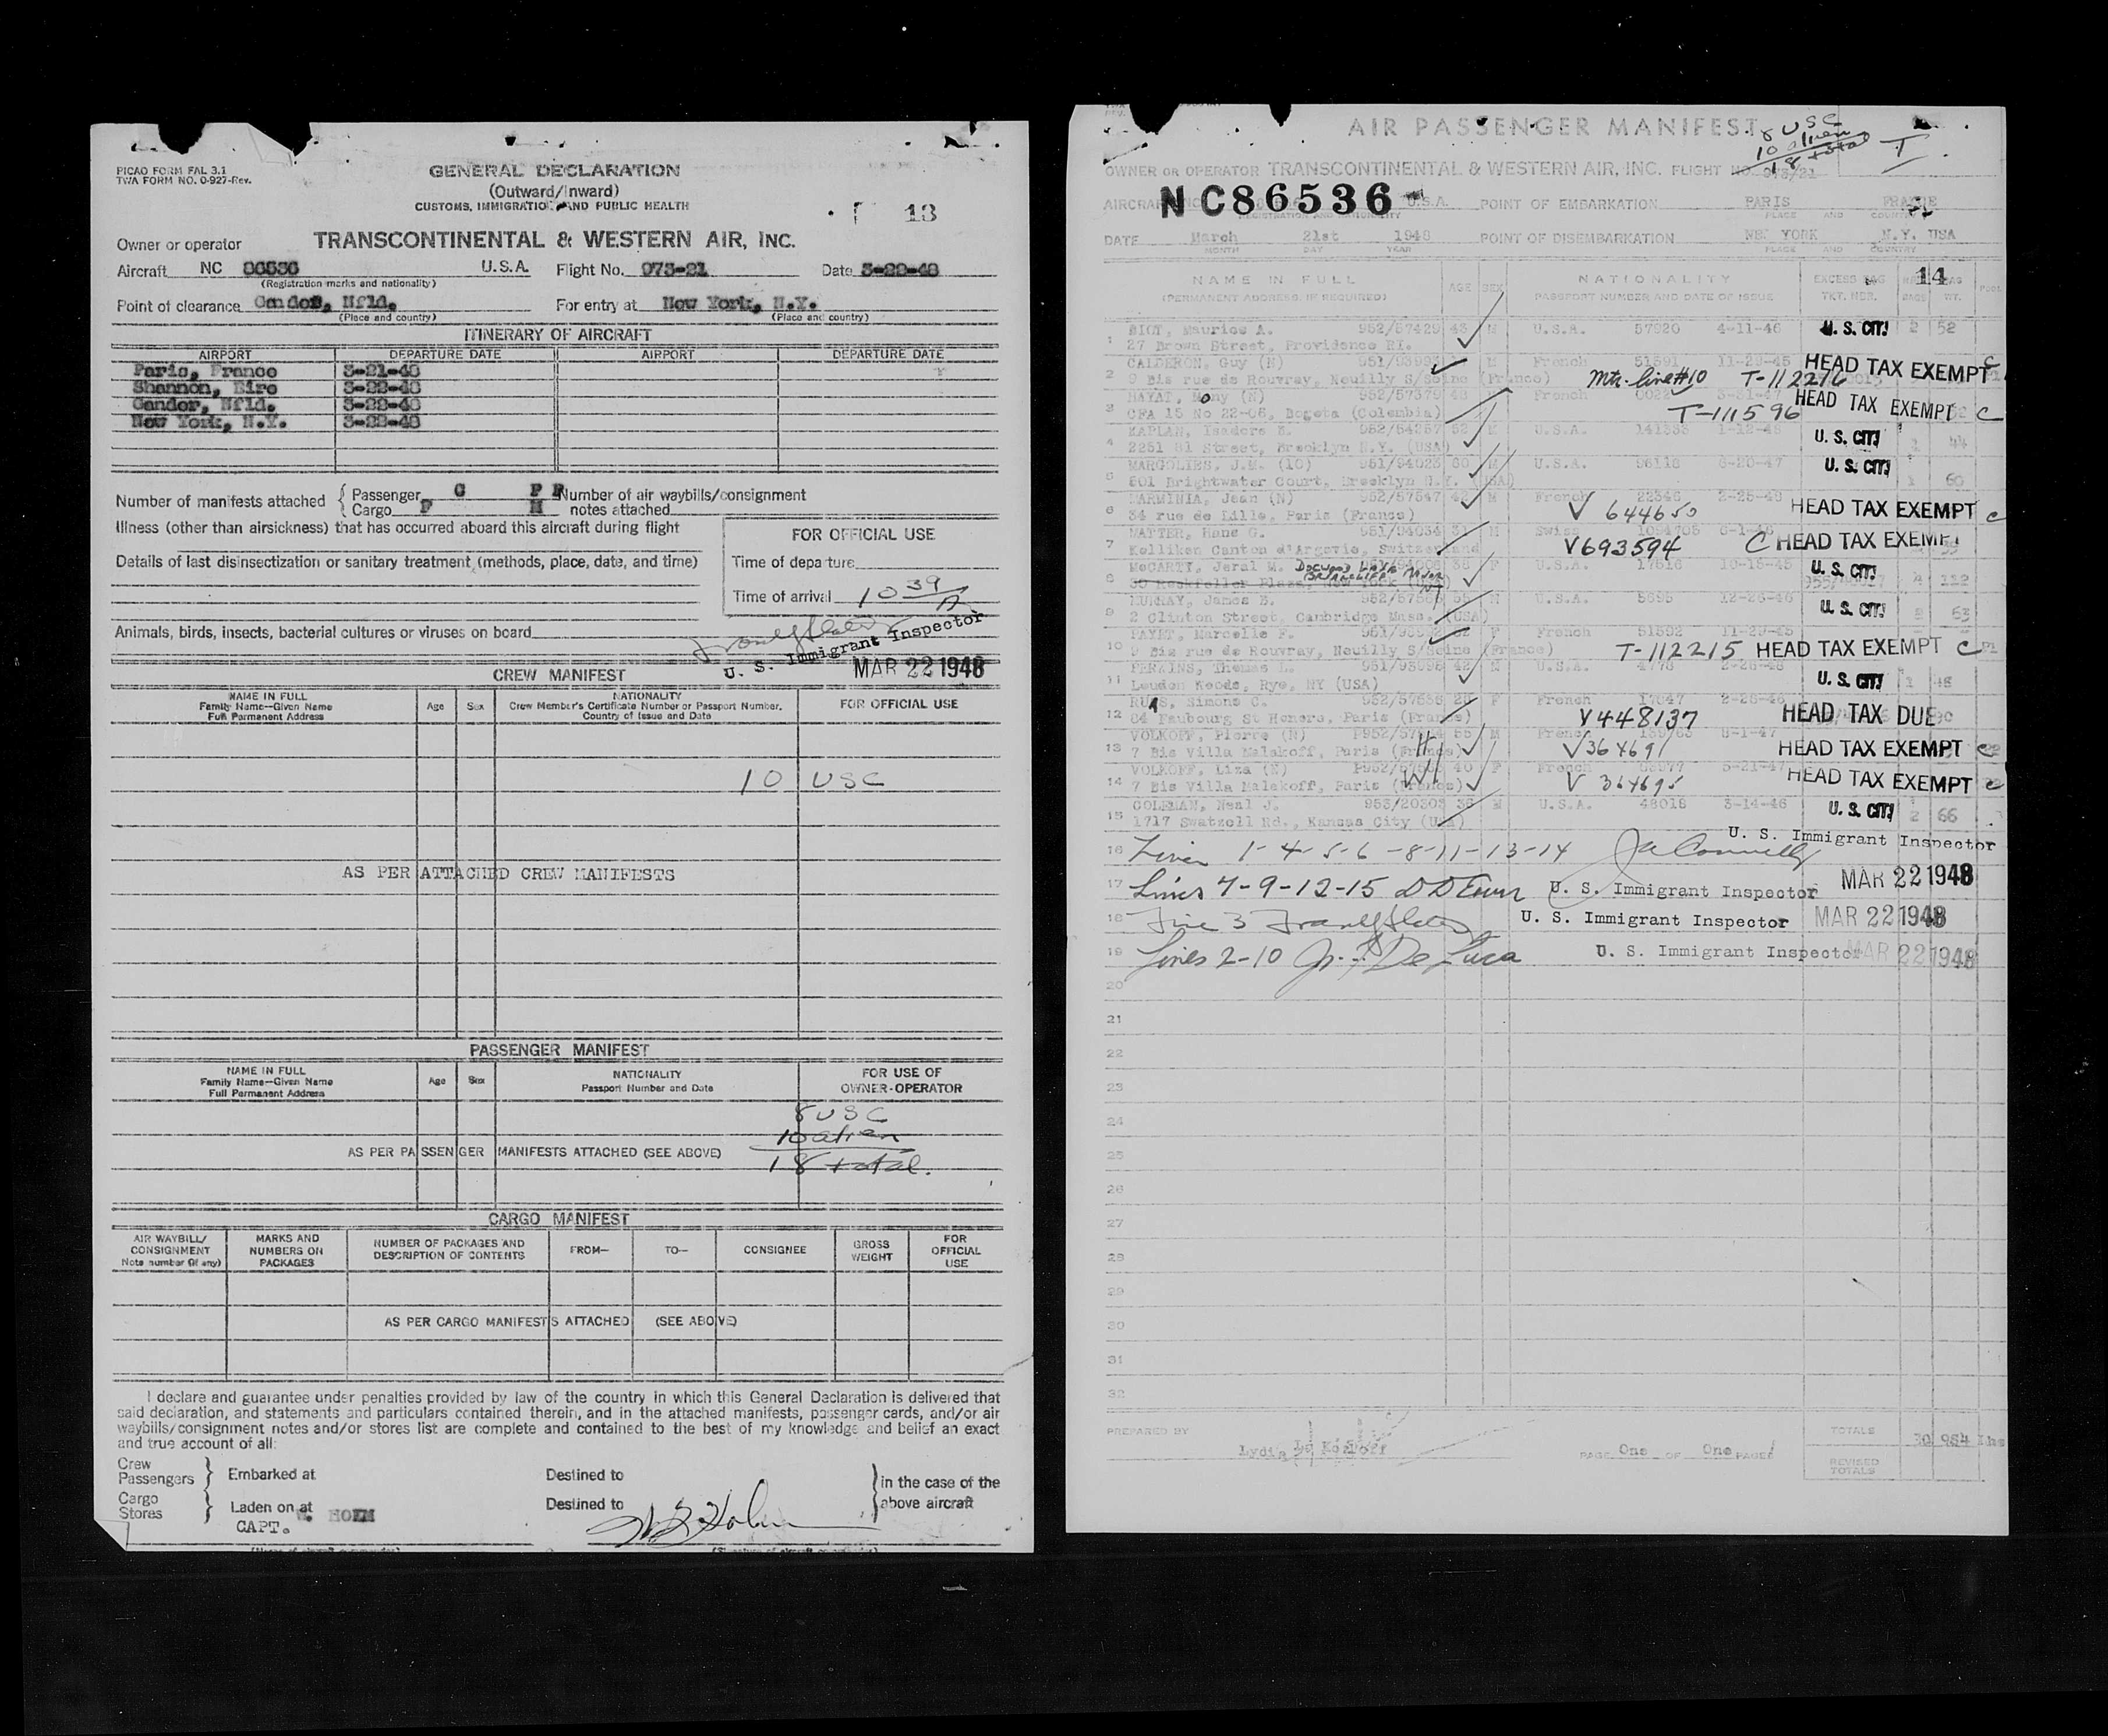 PICAO FORM FAL 3.1
TWA FORM NO. 0-927-Rev.
GENERAL DECLARATION
(Outward/Inward)
CUSTOMS, IMMIGRATION AND PUBLIC HEALTH
13
Owner or operator TRANSCONTINENTAL & WESTERN AIR, INC.
Aircraft NC 86536 U.S.A. Flight No. 973-21 Date 3-22-48
(Registration marks and nationality)
Point of clearance Gander, Nfld. For entry at New York, N.Y.
(Place and country) (Place and country)
ITINERARY OF AIRCRAFT
AIRPORT DEPARTURE DATE AIRPORT DEPARTURE DATE
Paris, France 3-21-48
Shannon, Eire 3-22-48
Gander, Nfld. 3-22-48
New York, N.Y. 3-22-48
Number of manifests attached { Passenger Number of air waybills/consignment
Cargo notes attached
Illness (other than airsickness) that has occurred aboard this aircraft during flight
FOR OFFICIAL USE
Details of last disinsectization or sanitary treatment (methods, place, date, and time)
Time of departure
Time of arrival 10 39 A
Animals, birds, insects, bacterial cultures or viruses on board
U. S. Immigrant Inspector
MAR 22 1948
CREW MANIFEST
NAME IN FULL
Family Name—Given Name
Full Permanent Address
Age Sex
NATIONALITY
Crew Member's Certificate Number or Passport Number,
Country of Issue and Date
FOR OFFICIAL USE
10 USC
AS PER ATTACHED CREW MANIFESTS
PASSENGER MANIFEST
NAME IN FULL
Family Name—Given Name
Full Permanent Address
Age Sex
NATIONALITY
Passport Number and Date
FOR USE OF
OWNER-OPERATOR
8 USC
10 alien
AS PER PASSENGER MANIFESTS ATTACHED (SEE ABOVE)
18 total.
CARGO MANIFEST
AIR WAYBILL/
CONSIGNMENT
Note number (if any)
MARKS AND
NUMBERS ON
PACKAGES
NUMBER OF PACKAGES AND
DESCRIPTION OF CONTENTS
FROM— TO— CONSIGNEE
GROSS
WEIGHT
FOR
OFFICIAL
USE
AS PER CARGO MANIFESTS ATTACHED (SEE ABOVE)
I declare and guarantee under penalties provided by law of the country in which this General Declaration is delivered that
said declaration, and statements and particulars contained therein, and in the attached manifests, passenger cards, and/or air
waybills/consignment notes and/or stores list are complete and contained to the best of my knowledge and belief an exact
and true account of all:
Crew
Passengers } Embarked at Destined to
Cargo
Stores } Laden on at Destined to
in the case of the
above aircraft
CAPT. W. HOLM
AIR PASSENGER MANIFEST
8 USC
10 alien
18 total
T
OWNER OR OPERATOR TRANSCONTINENTAL & WESTERN AIR, INC. FLIGHT NO. 973/21
AIRCRAFT NC86536 U.S.A. POINT OF EMBARKATION PARIS FRANCE
REGISTRATION AND NATIONALITY PLACE AND COUNTRY
DATE March 21st 1948 POINT OF DISEMBARKATION NEW YORK N.Y. USA
MONTH DAY YEAR PLACE AND COUNTRY
14
NAME IN FULL
(PERMANENT ADDRESS, IF REQUIRED)
AGE SEX
NATIONALITY
PASSPORT NUMBER AND DATE OF ISSUE
EXCESS BAG
TKT. NBR.
1 BIOT, Maurice A. 952/57429 43 M U.S.A. 57920 4-11-46 U. S. CIT. 2 52
27 Brown Street, Providence RI.
2 CALDERON, Guy (N) M French 51591 11-29-45 HEAD TAX EXEMPT C
9 Bis rue de Rouvray, Neuilly S/Seine (France) Mtr. line #10 T-112216
3 HAYAT, Mony (N) 952/57379 French HEAD TAX EXEMPT C
CFA 15 No 22-08, Bogota (Colombia) T-111596
4 KAPLAN, Isadore E. 952/54257 M U.S.A. U. S. CIT. 44
2251 81 Street, Brooklyn N.Y. (USA)
5 MARGOLIES, J.M. (10) 951/94023 60 M U.S.A. 96118 6-20-47 U. S. CIT. 60
601 Brightwater Court, Brooklyn N.Y. (USA)
6 MARMINIA, Jean (N) 952/57547 42 M French 22346 2-25-48 HEAD TAX EXEMPT C
34 rue de Lille, Paris (France) V 644650
7 MATTER, Hans G. 951/94034 31 M Swiss HEAD TAX EXEMPT
Kolliken Canton d'Argovie, Switzerland V693594 C
8 McCARTY, Jeral M. F 17616 10-15-45 U. S. CIT. 4 112
30 Rockfeller Plaza, New York
9 MURRAY, James E. 952/57566 55 M U.S.A. 5695 12-26-46 U. S. CIT. 63
2 Clinton Street, Cambridge Mass. (USA)
10 PAYET, Marcelle F. F French 51592 11-29-45
9 Bis rue de Rouvray, Neuilly S/Seine (France) T-112215 HEAD TAX EXEMPT C
11 PERKINS, Thomas L. 951/93998 42 M U.S.A. U. S. CIT. 48
Loudon Woods, Rye, NY (USA)
12 RUAS, Simone C. 952/57555 28 F French 17847 2-28-46
84 Faubourg St Honore, Paris (France) V448137 HEAD TAX DUE
13 VOLKOFF, Pierre (N) 55 M French
7 Bis Villa Malakoff, Paris (France) V364691 HEAD TAX EXEMPT C
14 VOLKOFF, Liza (N) 40 F French HEAD TAX EXEMPT C
7 Bis Villa Malakoff, Paris (France) V 364695
15 COLEMAN, Neal J. 953/20303 36 M U.S.A. 48018 3-14-46 U. S. CIT. 2 66
1717 Swatzell Rd., Kansas City (USA)
U. S. Immigrant Inspector
16 Lines 1-4-5-6-8-11-13-14 JA Connelly
MAR 22 1948
17 Lines 7-9-12-15 U. S. Immigrant Inspector
18 Line 3 U. S. Immigrant Inspector MAR 22 1948
19 Lines 2-10 De Luca U. S. Immigrant Inspector MAR 22 1948
20
21
22
23
24
25
26
27
28
29
30
31
32
PREPARED BY Lydia PAGE One OF One PAGES
TOTALS 30 984 lbs
REVISED
TOTALS